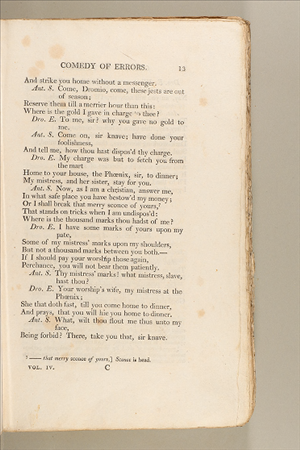 COMEDY OF ERRORS. 13
And strike you home without a messenger.
Ant. S. Come, Dromio, come, these jests are out
of season;
Reserve them till a merrier hour than this:
Where is the gold I gave in charge to thee?
Dro. E. To me, sir? why you gave no gold to
me.
Ant. S. Come on, sir knave; have done your
foolishness,
And tell me, how thou hast dispos'd thy charge.
Dro. E. My charge was but to fetch you from
the mart
Home to your house, the Phœnix, sir, to dinner;
My mistress, and her sister, stay for you.
Ant. S. Now, as I am a christian, answer me,
In what safe place you have bestow'd my money;
Or I shall break that merry sconce of yours,⁷
That stands on tricks when I am undispos'd:
Where is the thousand marks thou hadst of me?
Dro. E. I have some marks of yours upon my
pate,
Some of my mistress' marks upon my shoulders,
But not a thousand marks between you both.—
If I should pay your worship those again,
Perchance, you will not bear them patiently.
Ant. S. Thy mistress' marks! what mistress, slave,
hast thou?
Dro. E. Your worship's wife, my mistress at the
Phœnix;
She that doth fast, till you come home to dinner,
And prays, that you will hie you home to dinner.
Ant. S. What, wilt thou flout me thus unto my
face,
Being forbid? There, take you that, sir knave.
⁷ —— that merry sconce of yours,] Sconce is head.
VOL. IV. C